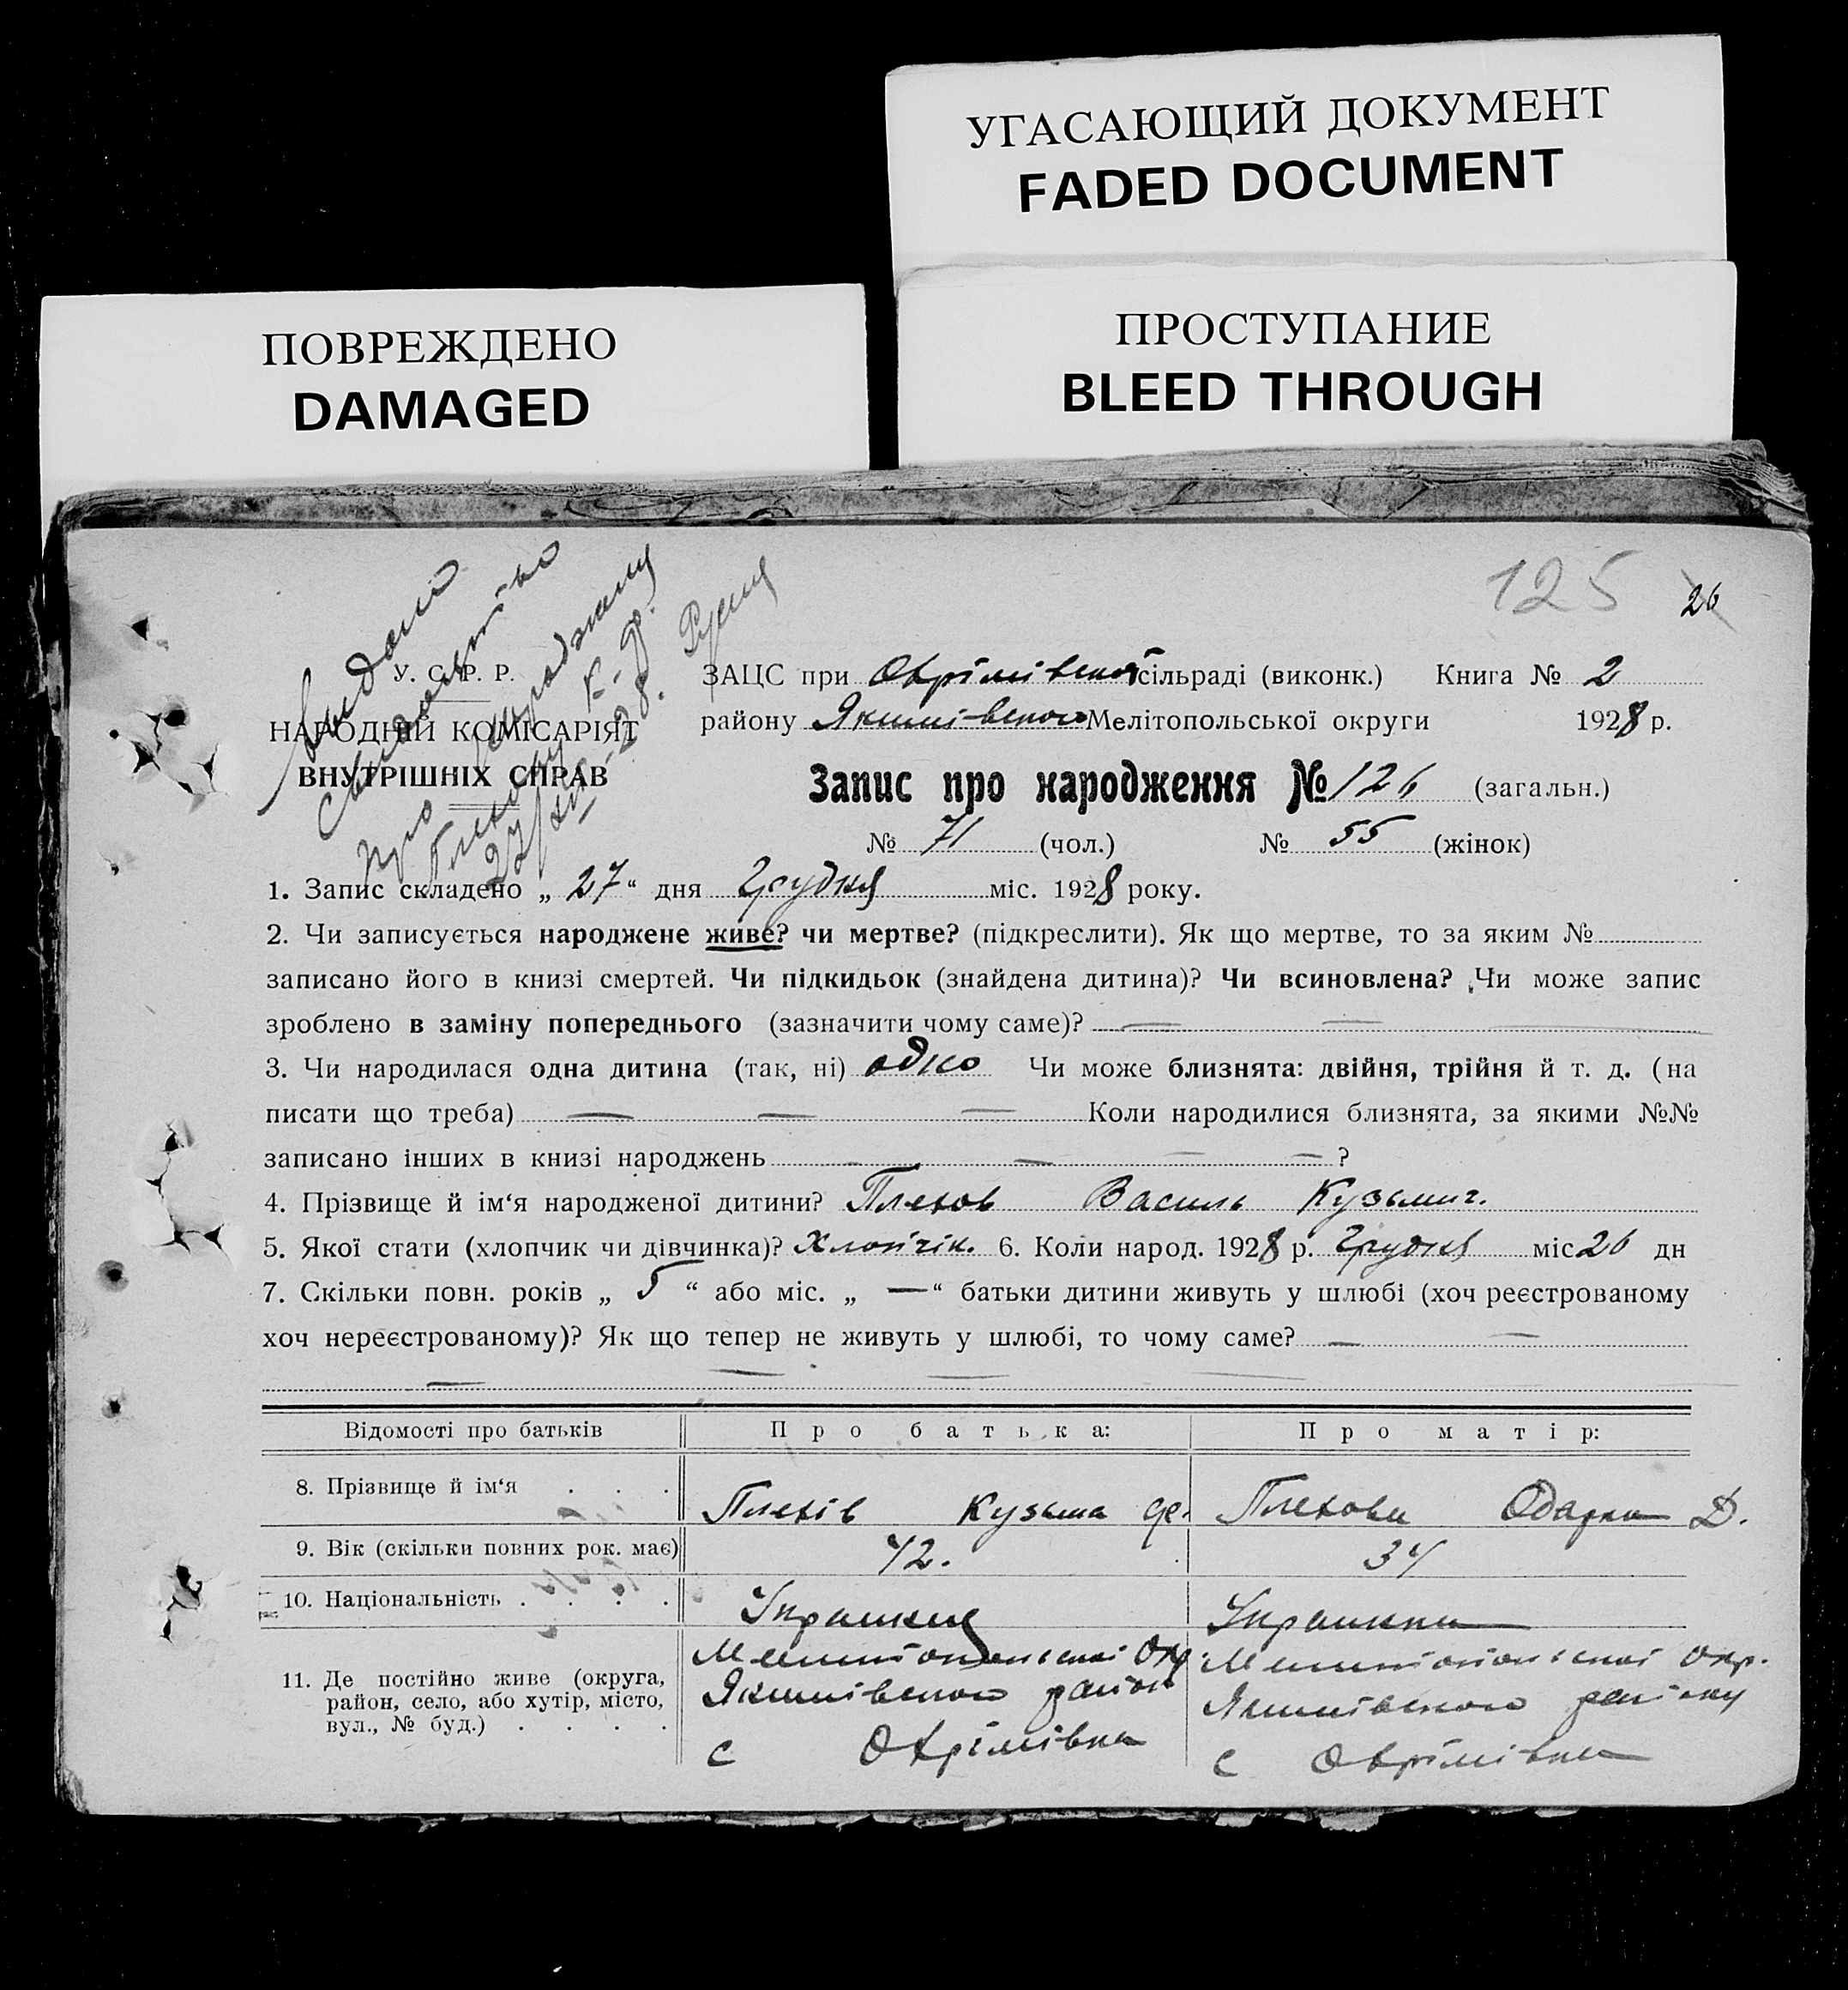 УГАСАЮЩИЙ ДОКУМЕНТ
FADED DOCUMENT
ПОВРЕЖДЕНО
DAMAGED
ПРОСТУПАНИЕ
BLEED THROUGH
125 26
Видано
Свидоцтво
про
27/XII-28.
У. С. Р. Р.
НАРОДНІЙ КОМІСАРІЯТ
ВНУТРІШНІХ СПРАВ
ЗАЦС при Охрімівской сільраді (виконк.) Книга № 2
району Якимівского Мелітопольської округи 1928 р.
Запис про народження № 126 (загальн.)
№ 71 (чол.) № 55 (жінок)
1. Запис складено „ 27 “ дня Грудня міс. 1928 року.
2. Чи записується народжене живе? чи мертве? (підкреслити). Як що мертве, то за яким №
записано його в книзі смертей. Чи підкидьок (знайдена дитина)? Чи всиновлена? Чи може запис
зроблено в заміну попереднього (зазначити чому саме)? — —
3. Чи народилася одна дитина (так, ні) одно Чи може близнята: двійня, трійня й т. д. (на
писати що треба) — — — Коли народилися близнята, за якими №№
записано інших в книзі народжень — — — — ?
4. Прізвище й ім‘я народженої дитини? Плехов Василь Кузьмич.
5. Якої стати (хлопчик чи дівчинка)? Хлопчік. 6. Коли народ. 1928 р. Грудня міс 26 дн
7. Скільки повн. років „ 5 “ або міс. „ — “ батьки дитини живуть у шлюбі (хоч реєстрованому
хоч нереєстрованому)? Як що тепер не живуть у шлюбі, то чому саме? — —
— — —
Відомості про батьків Про батька: Про матір:
8. Прізвище й ім‘я . . . Плехів Кузьма Ф. Плехова Одарка Д.
9. Вік (скільки повних рок. має) 42. 34
10. Національність . . . . Українец Українка
11. Де постійно живе (округа, район, село, або хутір, місто, вул., № буд.) . . . .
Мелитопольскоі Окр. Якимівского район с Охрімівка
Мелитопольскоі Окр. Якимівского району с Охрімівка